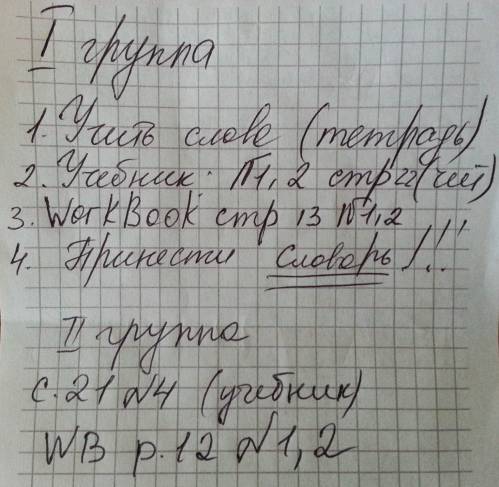 I группа
1. Учить слова (тетрадь)
2. Учебник: №1, 2 стр 22 (чит)
3. WorkBook стр 13 №1,2
4. Принести словарь!!!
II группа
с. 21 №4 (учебник)
WB p. 12 №1,2